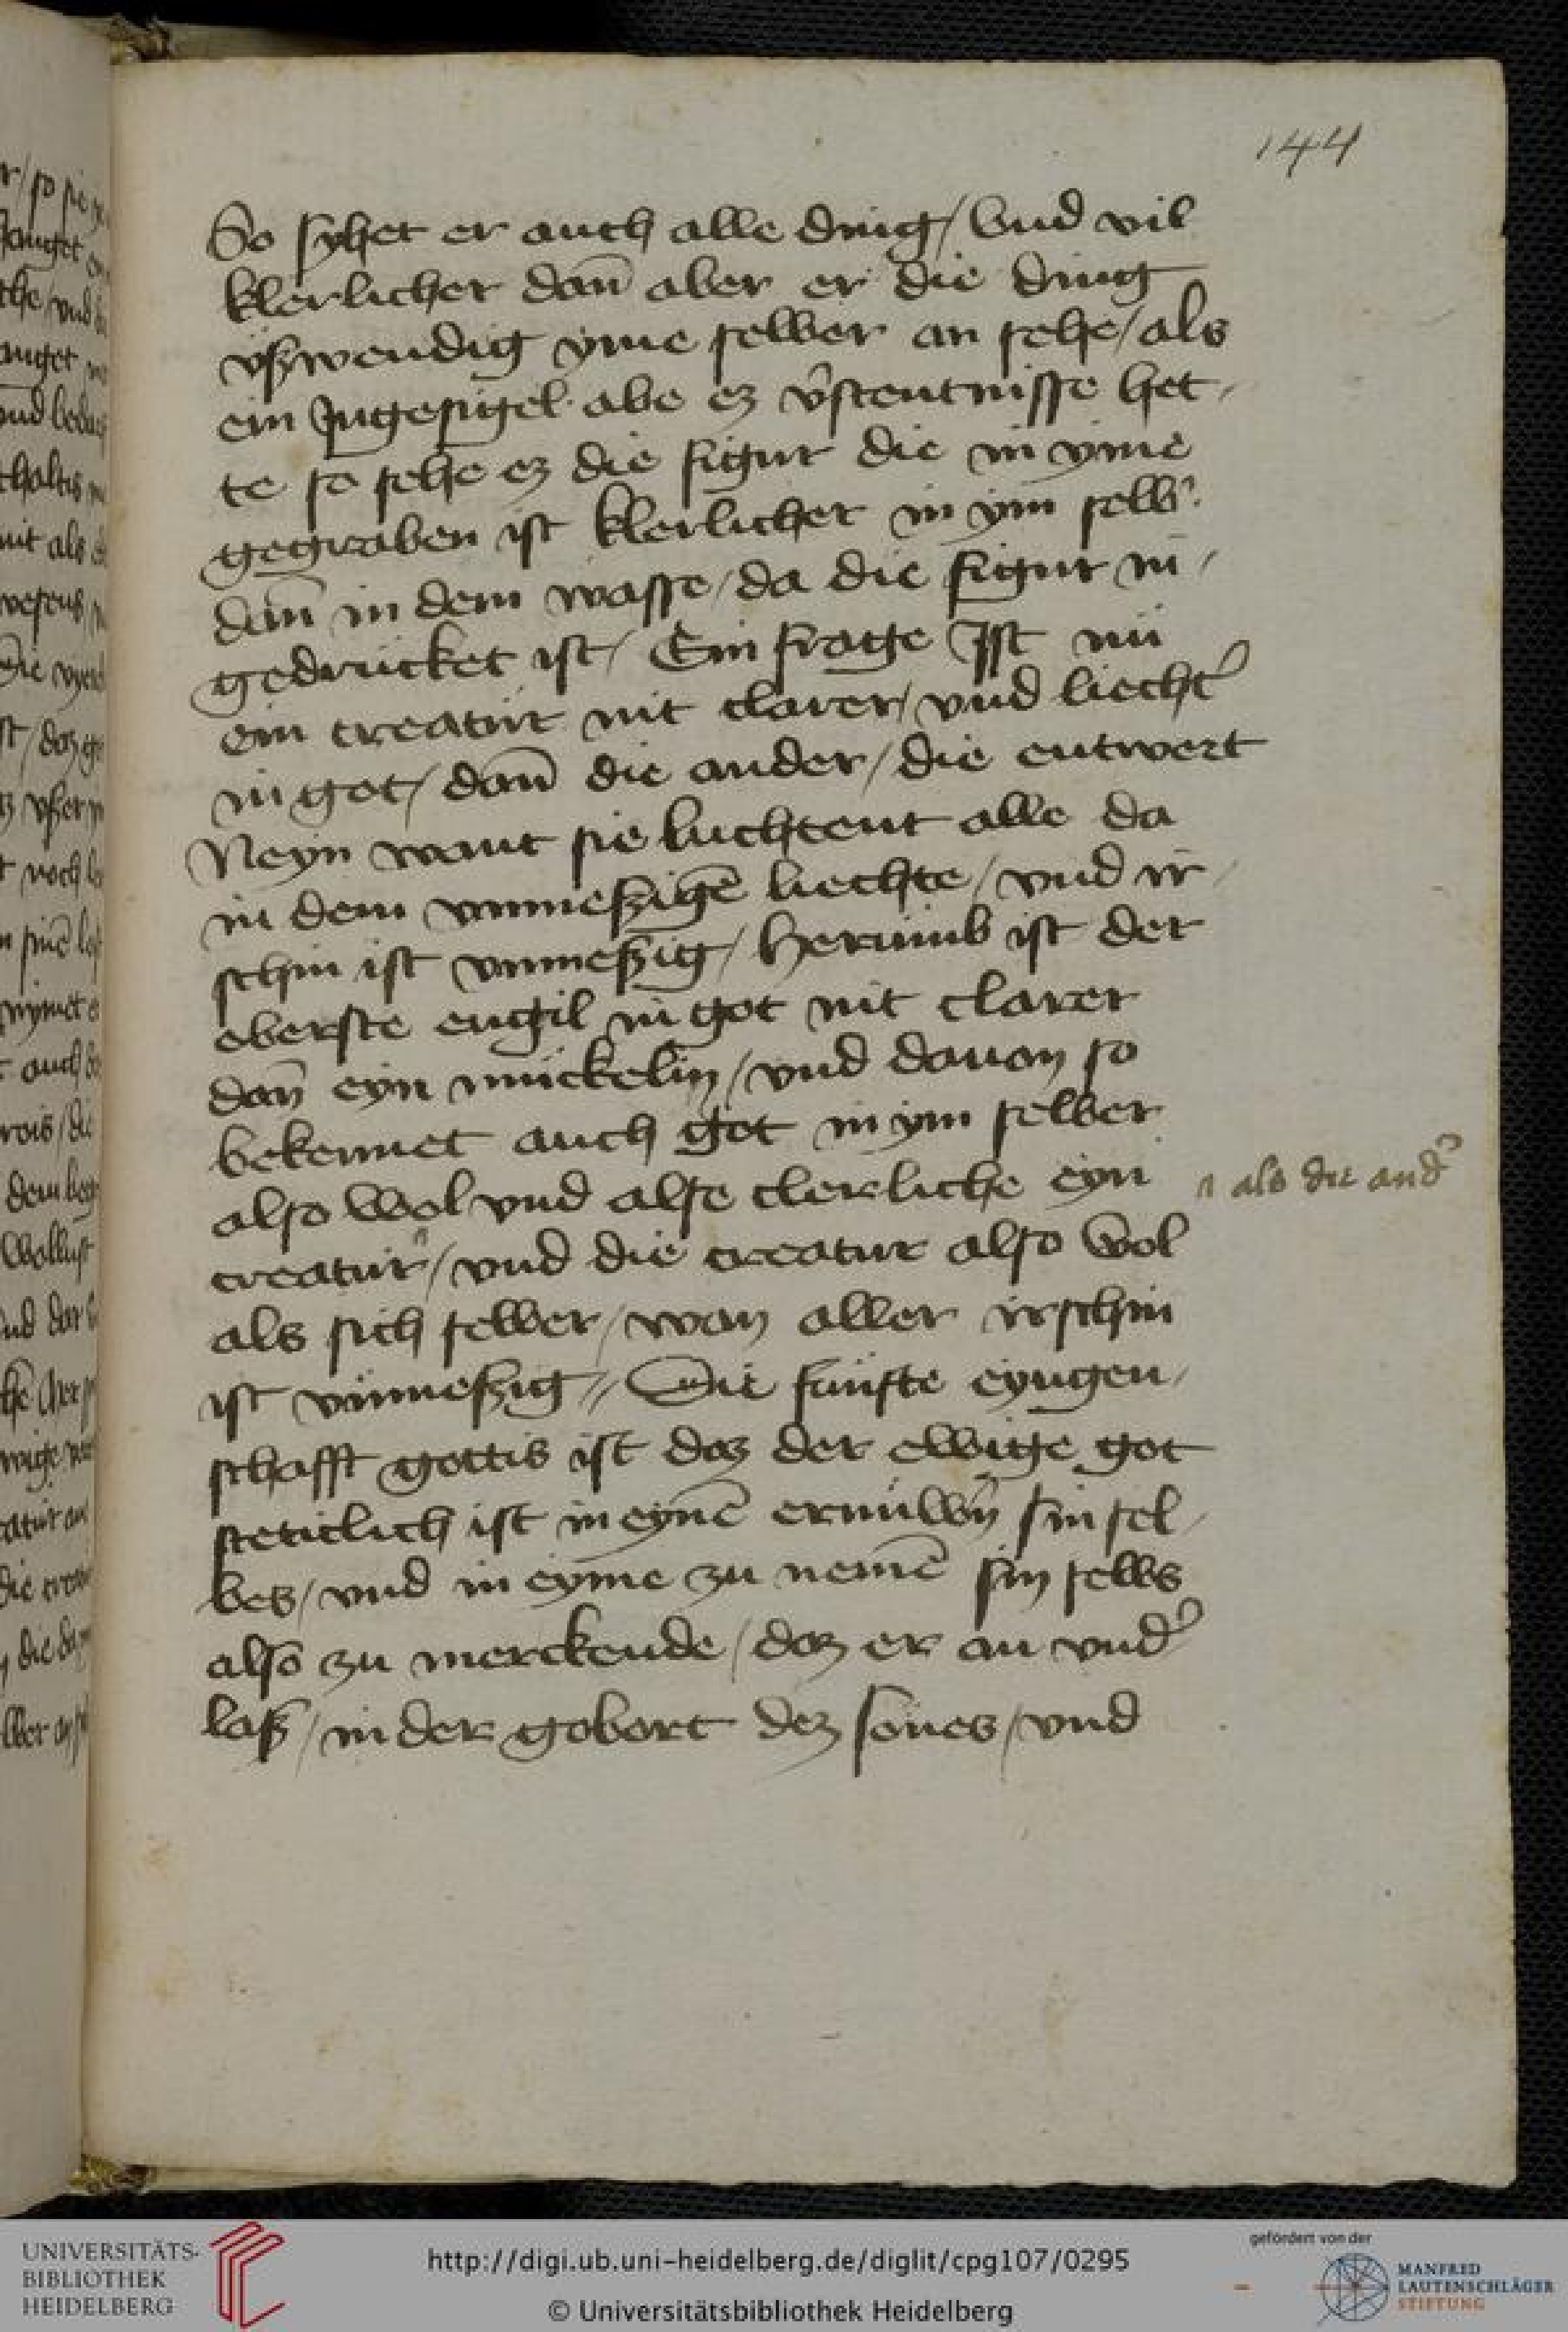 144
So syhet er auch alle ding / Vnd vil
klerlicher dan̄ aber er die ding
vßwendig yme selber an sehe / als
ein Jngesigel abe ez v̄stentnisse het-
te so sehe ez die figur die in yme
gegraben ist klerlicher in ym selb̉
dan̄ in dem wasse / da die figur in /
gedrücket ist / Ein frage Jst nü
ein creatür nit clarer / vnd liecht̉
in got / dan̄ die ander / die entwert
Neyn want sie luchtent alle da
in dem vnmeßigē liechte / vnd ir /
schin ist vnmeßig / Herümb ist der
oberste engil in got nit clarer
dan̄ eyn mückelin / vnd dauon so
bekennet auch got in ym selber
also wol vnd alse clerliche eyn ꞁ als die and̉
creatür / vnd die creatur also wol
als sich selber / wan aller irschin
ist vnmeßig // Die fünfte eyngen /
schafft gottis ist daz der ewige got
steticlich ist in eynē ernüwn̄ sin sel /
bes / vnd in eyme zu nemē sin selbs
also zu merckende / daz er an vnd̉
laß / in der gobort dez sones / vnd
r / so sie
the / vnd
nit als
UNIVERSITÄTS-
BIBLIOTHEK
HEIDELBERG
http://digi.ub.uni-heidelberg.de/diglit/cpg107/0295
© Universitätsbibliothek Heidelberg
gefördert von der
MANFRED
LAUTENSCHLÄGER
STIFTUNG